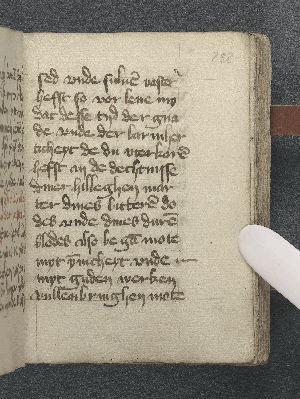 sed vnde suluē vaster
hefft so vor lene my
dat desse tyd der gna
de vnde der barmher
ticheyt de du vterkorē
hefft an de dechtnisse
dyner hilleghen mar
ter dynes bitterē do
des vnde dynes durē
blodes also be gā mote
myt ynicheyt vnde
myt guden werken
vullenbringhen mote